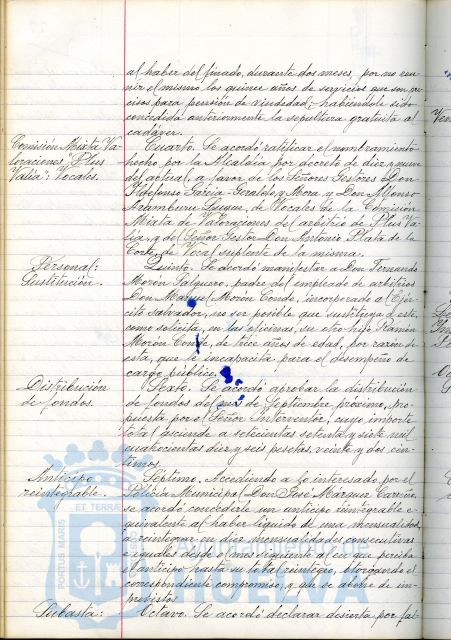 al haber del finado, durante dos meses, por no reu-
nir el mismo los quince años de servicios que son pre-
cisos para pensión de viudedad; habiéndole sido
concedida anteriormente la sepultura gratuita al
cadáver.
Comisión Mixta Va-
loraciones "Plus
Valía": Vocales.
Cuarto. Se acordó ratificar el nombramiento
hecho por la Alcaldía por decreto de diez y nueve
del actual, a favor de los Señores Gestores Don
Ildefonso García Geraldo y Mora, y Don Alfonso
Aramburu Luque, de Vocales de la Comisión
Mixta de Valoraciones del arbitrio de Plus Va-
lía, y del Señor Gestor Don Antonio Plata de la
Corte, de Vocal suplente de la misma.
Personal:
Sustitución.
Quinto. Se acordó manifestar a Don Fernando
Morón Salguero, padre del empleado de arbitrios
Don Manuel Morón Conde, incorporado al Ejér-
cito salvador, no ser posible que sustituya a este,
como solicita, en las oficinas, su otro hijo Ramón
Morón Conde, de trece años de edad, por razón de
esta, que le incapacita para el desempeño de
cargo público.
Distribución
de fondos.
Sexto. Se acordó aprobar la distribución
de fondos del mes de Septiembre próximo, pro-
puesta por el Señor Interventor, cuyo importe
total asciende a setecientas setenta y siete mil
cuatrocientas diez y seis pesetas, veinte y dos cén-
timos.
Anticipo
reintegrable.
Séptimo. Accediendo a lo interesado por el
Policía Municipal Don José Márquez Carreño,
se acordó concederle un anticipo reintegrable e-
quivalente al haber líquido de una mensualidad
a reintegrar en diez mensualidades consecutivas
e iguales desde el mes siguiente al en que perciba
el anticipo hasta su total reintegro, otorgando el
correspondiente compromiso, y que se abone de im-
previstos
Subasta:
Octavo. Se acordó declarar desierta, por fal-
PORTUS MARIS
ET TERRAE
HUELVA